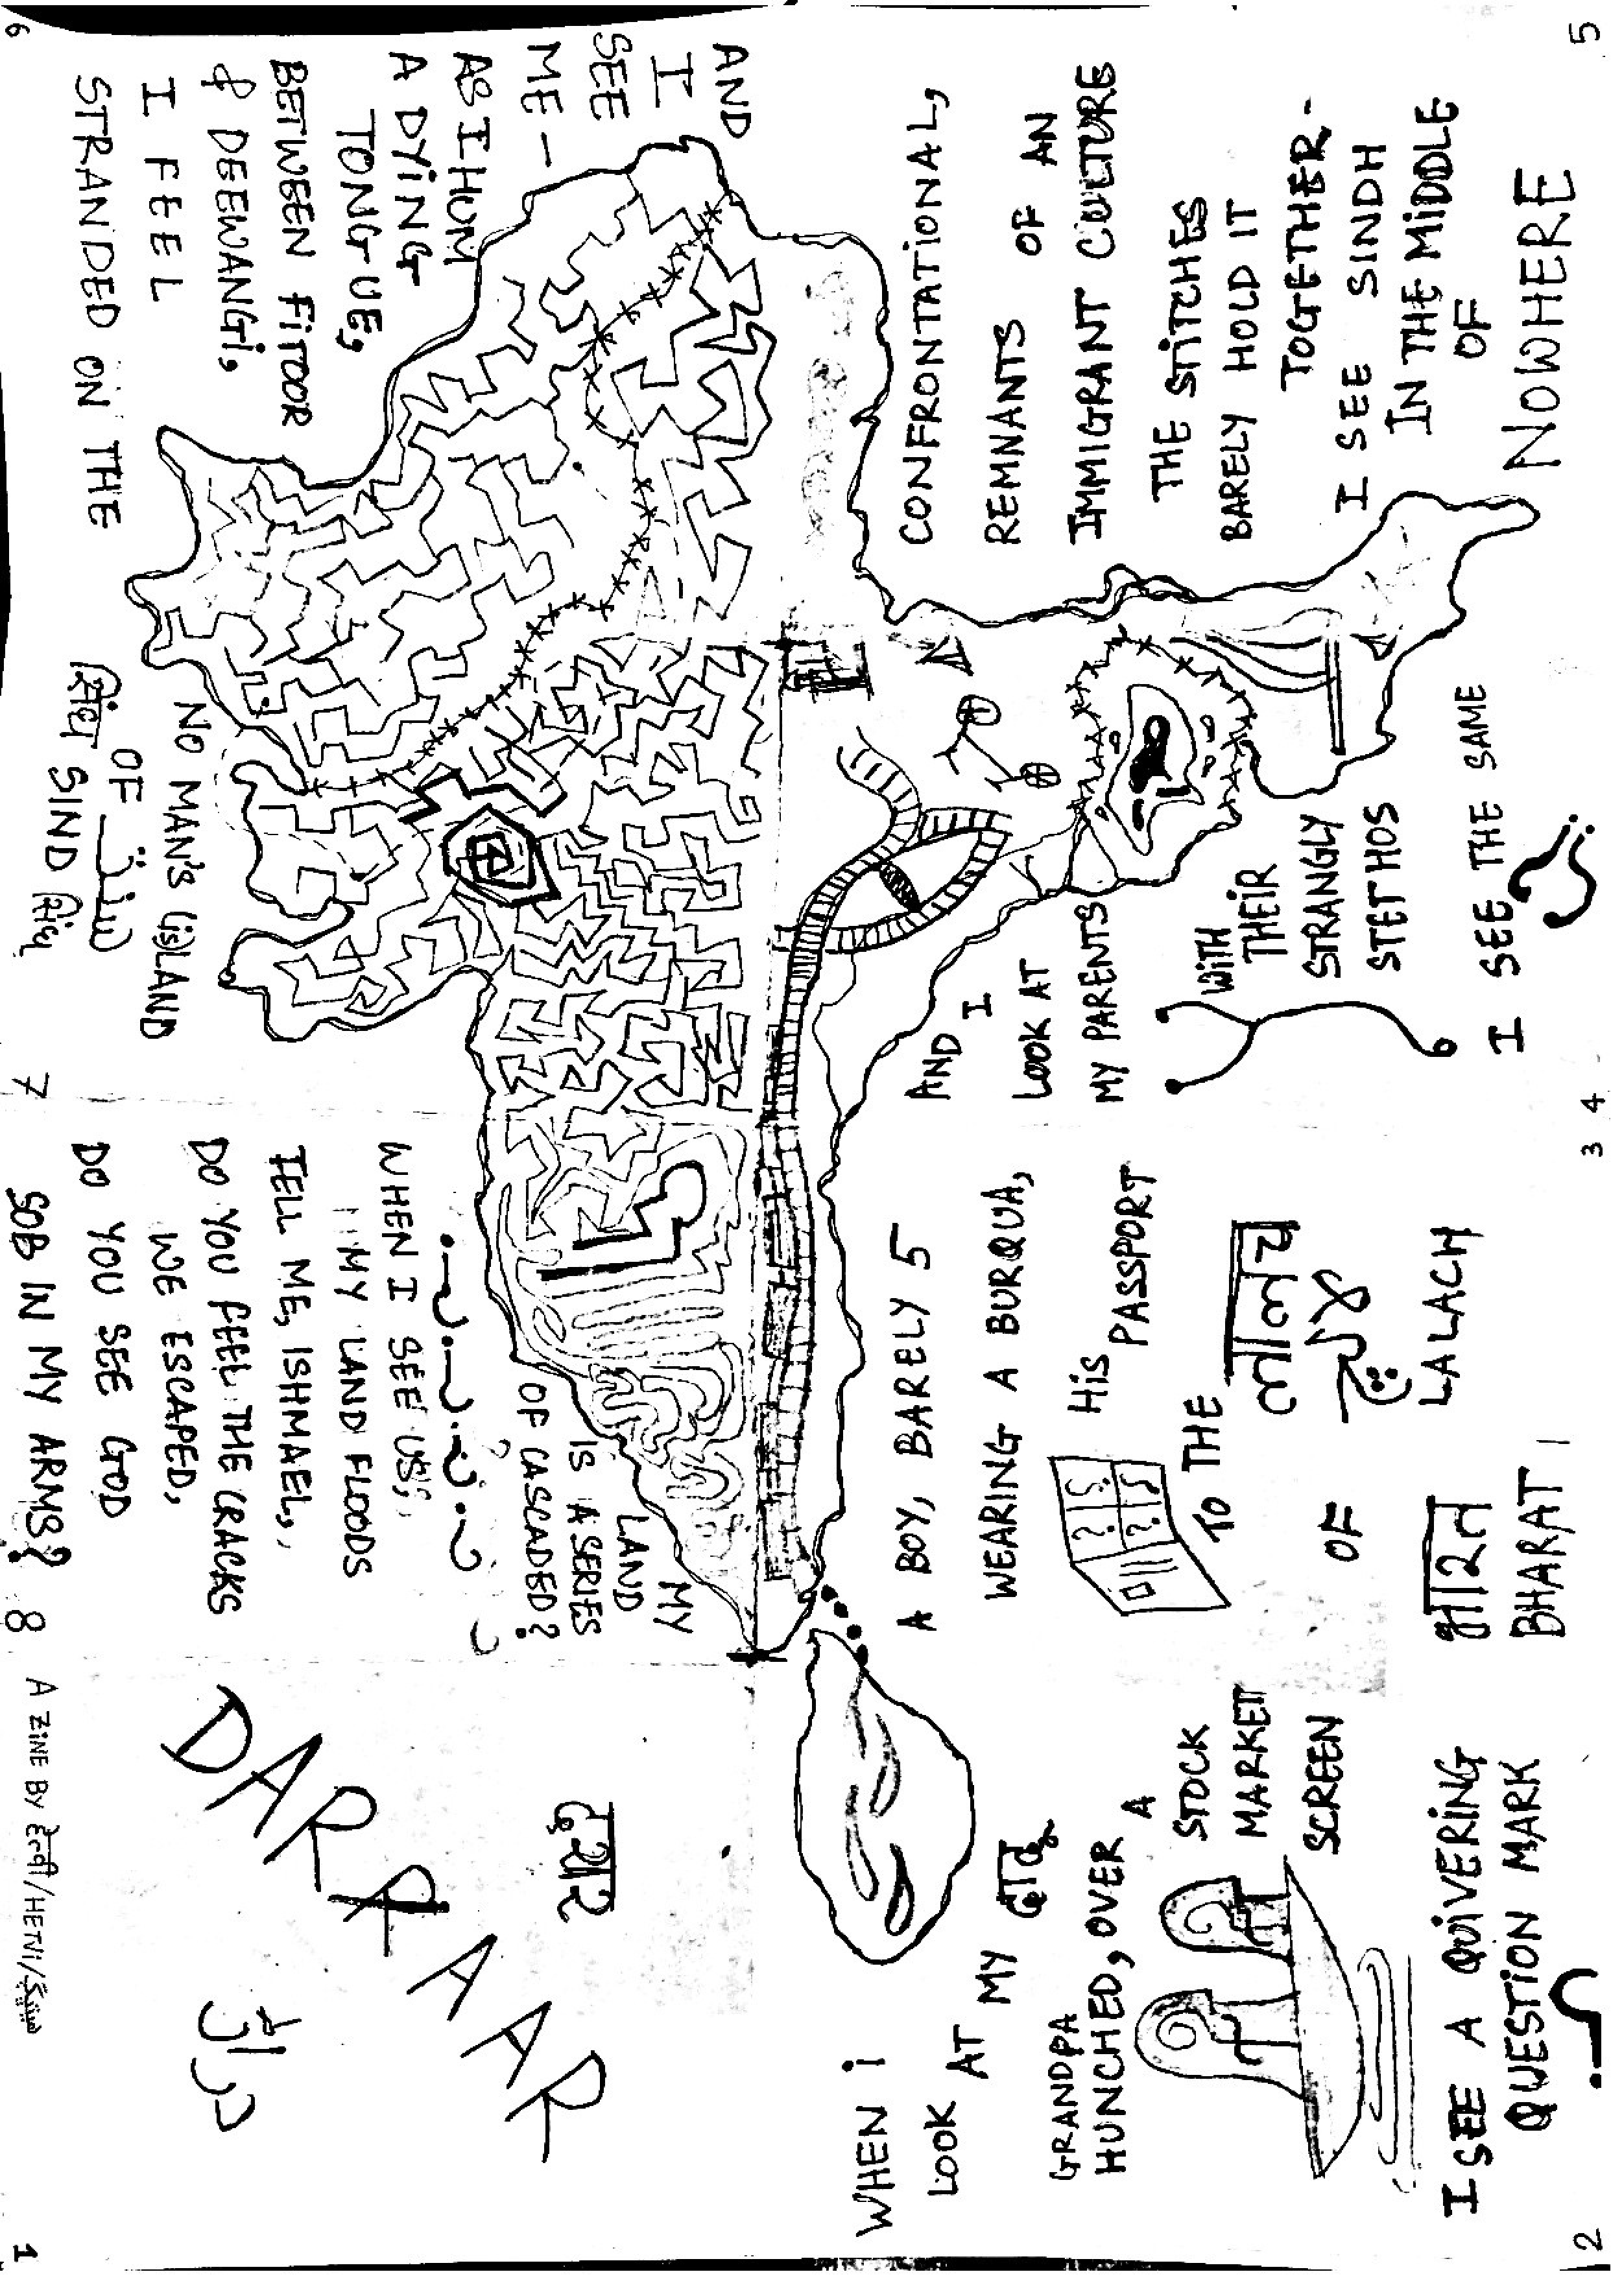 DARRAAR
दरार
دراڑ
A ZINE BY हेत्वी/HETVI/
1
2
WHEN i
LOOK AT
MY दादू
GRANDPA
HUNCHED, OVER
A
STOCK
MARKET
SCREEN
I SEE A QUIVERING
QUESTION MARK
؟
A BOY, BARELY 5
WEARING A BURQUA,
HIS
PASSPORT
TO THE
लालच
لالچ
LALACH
OF
भारत
BHARAT
3
4
AND I
LOOK AT
MY PARENTS
WITH
THEIR
STRANGLY
STETHOS
I SEE THE SAME
5
CONFRONTATIONAL,
REMNANTS OF AN
IMMIGRANT CULTURE
THE STITCHES
BARELY HOLD IT
TOGETHER-
I SEE SINDH
IN THE MIDDLE
OF
NOWHERE
6
AND
I
SEE
ME-
AS I HUM
A DYING
TONGUE,
BETWEEN FITOOR
& DEEWANGI,
I FEEL
STRANDED ON THE
NO MAN'S (IS)LAND
OF سنڌ
सिंध SIND सिंध
7
MY
LAND
IS A SERIES
OF CASCADED?
WHEN I SEE US,
MY LAND FLOODS
TELL ME, ISHMAEL,
DO YOU FEEL THE CRACKS
WE ESCAPED,
DO YOU SEE GOD
SOB IN MY ARMS?
8